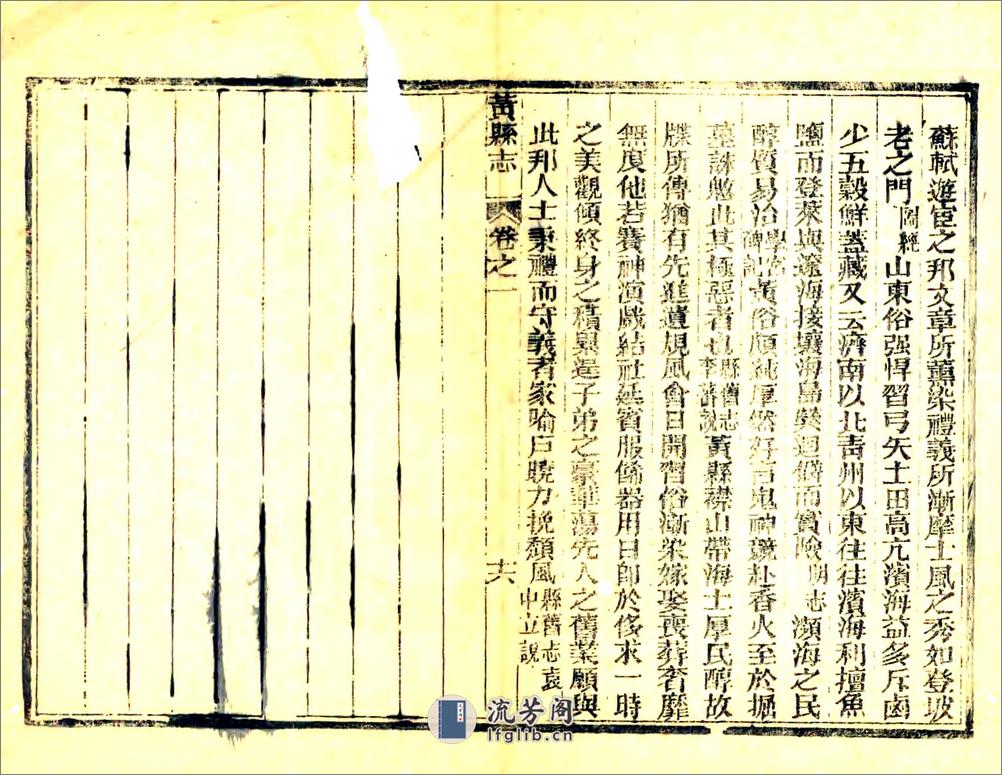 蘇軾遊宦之邦文章所薰染禮義所漸摩士風之秀如登坡
老之門圖經山東俗强悍習弓矢土田高亢濱海益多斥鹵
少五穀鮮蓋藏又云濟南以北靑州以東往往濱海利擅魚
鹽而登萊與遼海接壤海島縈迴僻而實險明志瀕海之民
醇質易治學宮碑記黃俗頗純厚然好言鬼神競赴香火至於掘
墓誅魃此其極惡者也縣舊志李蕃說黃縣襟山帶海土厚民醇故
牒所傳猶有先進遺規風會日開習俗漸染嫁娶喪葬奢靡
無度他若賽神演戲結社延賓服飾器用日卽於侈求一時
之美觀傾終身之積興逞子弟之豪華蕩先人之舊業願與
此邦人士秉禮而守義者家喻戶曉力挽頹風縣舊志袁中立說
黃縣志 卷之一 十六
流芳阁
lfglib.cn